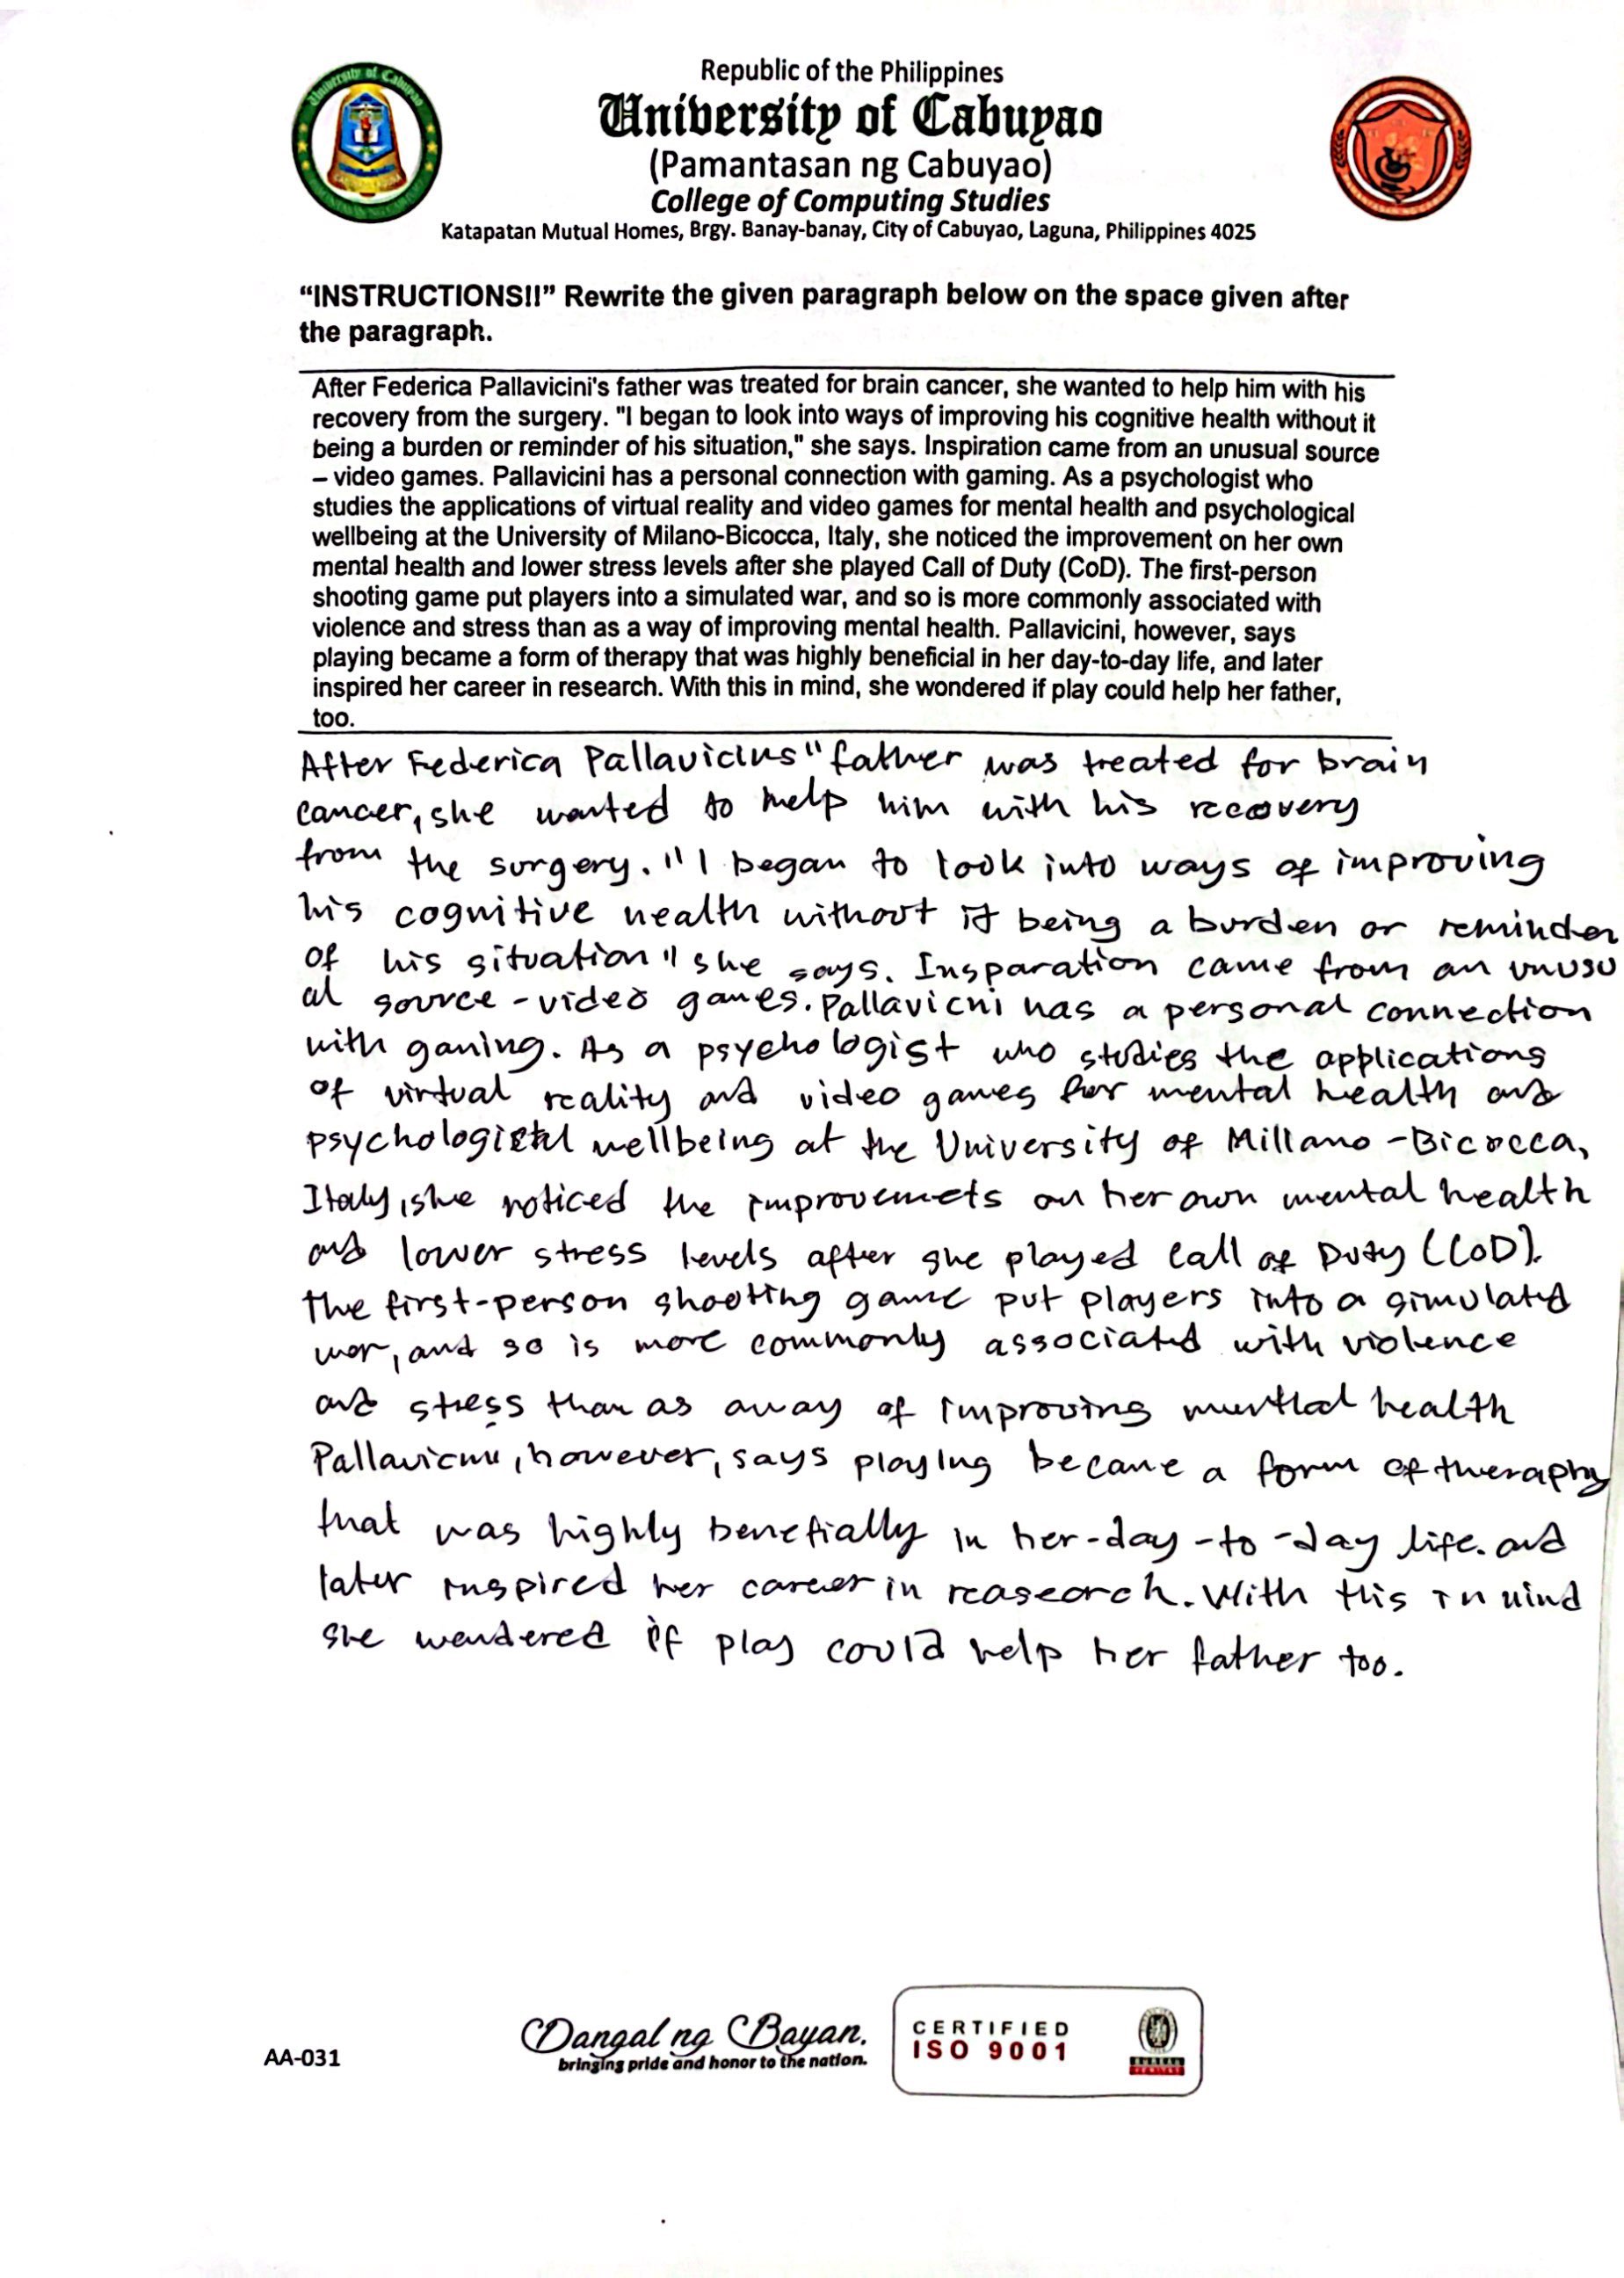 Republic of the Philippines
University of Cabuyao
(Pamantasan ng Cabuyao)
College of Computing Studies
Katapatan Mutual Homes, Brgy. Banay-banay, City of Cabuyao, Laguna, Philippines 4025
“INSTRUCTIONS!!” Rewrite the given paragraph below on the space given after
the paragraph.
After Federica Pallavicini's father was treated for brain cancer, she wanted to help him with his
recovery from the surgery. "I began to look into ways of improving his cognitive health without it
being a burden or reminder of his situation," she says. Inspiration came from an unusual source
– video games. Pallavicini has a personal connection with gaming. As a psychologist who
studies the applications of virtual reality and video games for mental health and psychological
wellbeing at the University of Milano-Bicocca, Italy, she noticed the improvement on her own
mental health and lower stress levels after she played Call of Duty (CoD). The first-person
shooting game put players into a simulated war, and so is more commonly associated with
violence and stress than as a way of improving mental health. Pallavicini, however, says
playing became a form of therapy that was highly beneficial in her day-to-day life, and later
inspired her career in research. With this in mind, she wondered if play could help her father,
too.
After Federica Pallavicius" father was treated for brain
cancer, she wanted to help him with his recovery
from the surgery. "I began to look into ways of improving
his cognitive health without it being a burden or reminder
of his situation" she says. Insparation came from an unusu
al source - video games. Pallavicni has a personal connection
with ganing. As a psychologist who studies the applications
of virtual reality and video games for mental health and
psychological wellbeing at the University of Millano -Bicocca,
Italy, she noticed the improvemets on her own mental health
and lower stress levels after she played Call of Duty (CoD).
The first-person shooting game put players into a simulated
war, and so is more commonly associated with violence
and stress than as away of improving health
Pallavicni, however, says playing became a form of theraphy
that was highly benefially in her-day-to-day life. and
later inspired her career in reasearch. With this in mind
she wondered if play could help her father too.
AA-031
Dangal ng Bayan.
bringing pride and honor to the nation.
CERTIFIED
ISO 9001